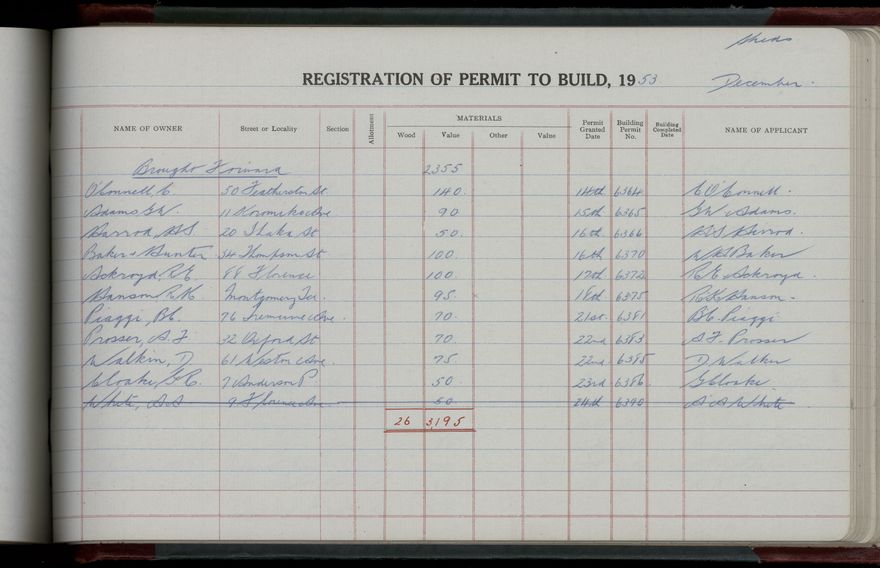 Sheds
REGISTRATION OF PERMIT TO BUILD, 1953
December.
NAME OF OWNER Street or Locality Section Allotment MATERIALS Wood Value Other Value Permit Granted Date Building Permit No. Building Completed Date NAME OF APPLICANT
Brought Forward 2355
O'Connell C. 50 Featherston St 140. 14th 6364 C O'Connell.
Adams G.W. 11 Koromiko Ave 90 15th 6365 G W Adams.
20 Ihaka St 50. 16th 6366
Baker & Hunter 34 Thompson St 100. 16th 6370 Baker
Ackroyd, R.E. 88 Florence 100. 17th 6372 R E Ackroyd.
Hanson R.K. Montgomery Ter. 95. 18th 6375 R K Hanson.
Piaggi, B.C. 76 Tremaine Ave. 70. 21st. 6381 B C. Piaggi
Prosser, A. F 32 Oxford St 70. 22nd 6383 A. F. Prosser
Walkin, D. 61 Ave. 75 22nd 6385 D. Walker
Cloake, G. C. 7 Anderson P 50. 23rd 6386. G Cloake.
White, A A 9 Florence Ave 50 24th 6390 A A White
26 3,195